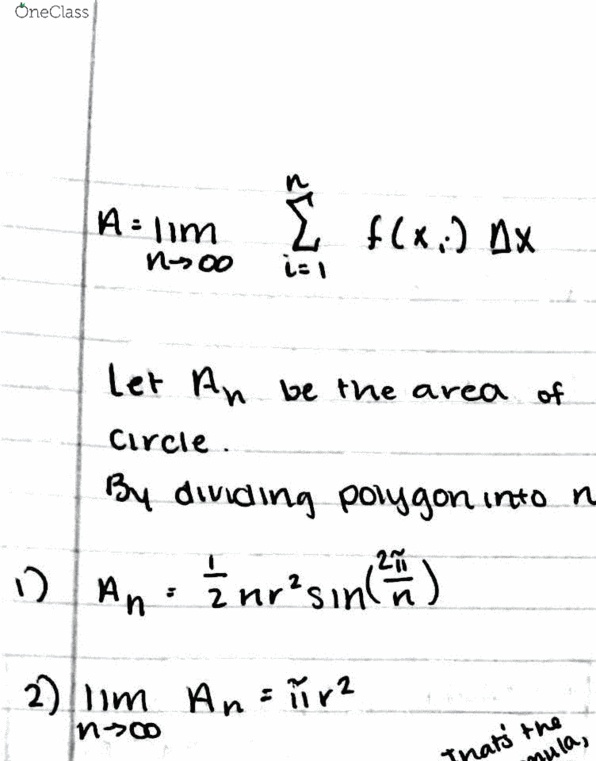 OneClass
A = lim n→∞ n Σ i=1 f(xi) Δx
Let An be the area of
circle.
By dividing polygon into n
1) An = 1/2 nr² sin(2π/n)
2) lim n→∞ An = πr²
That's the